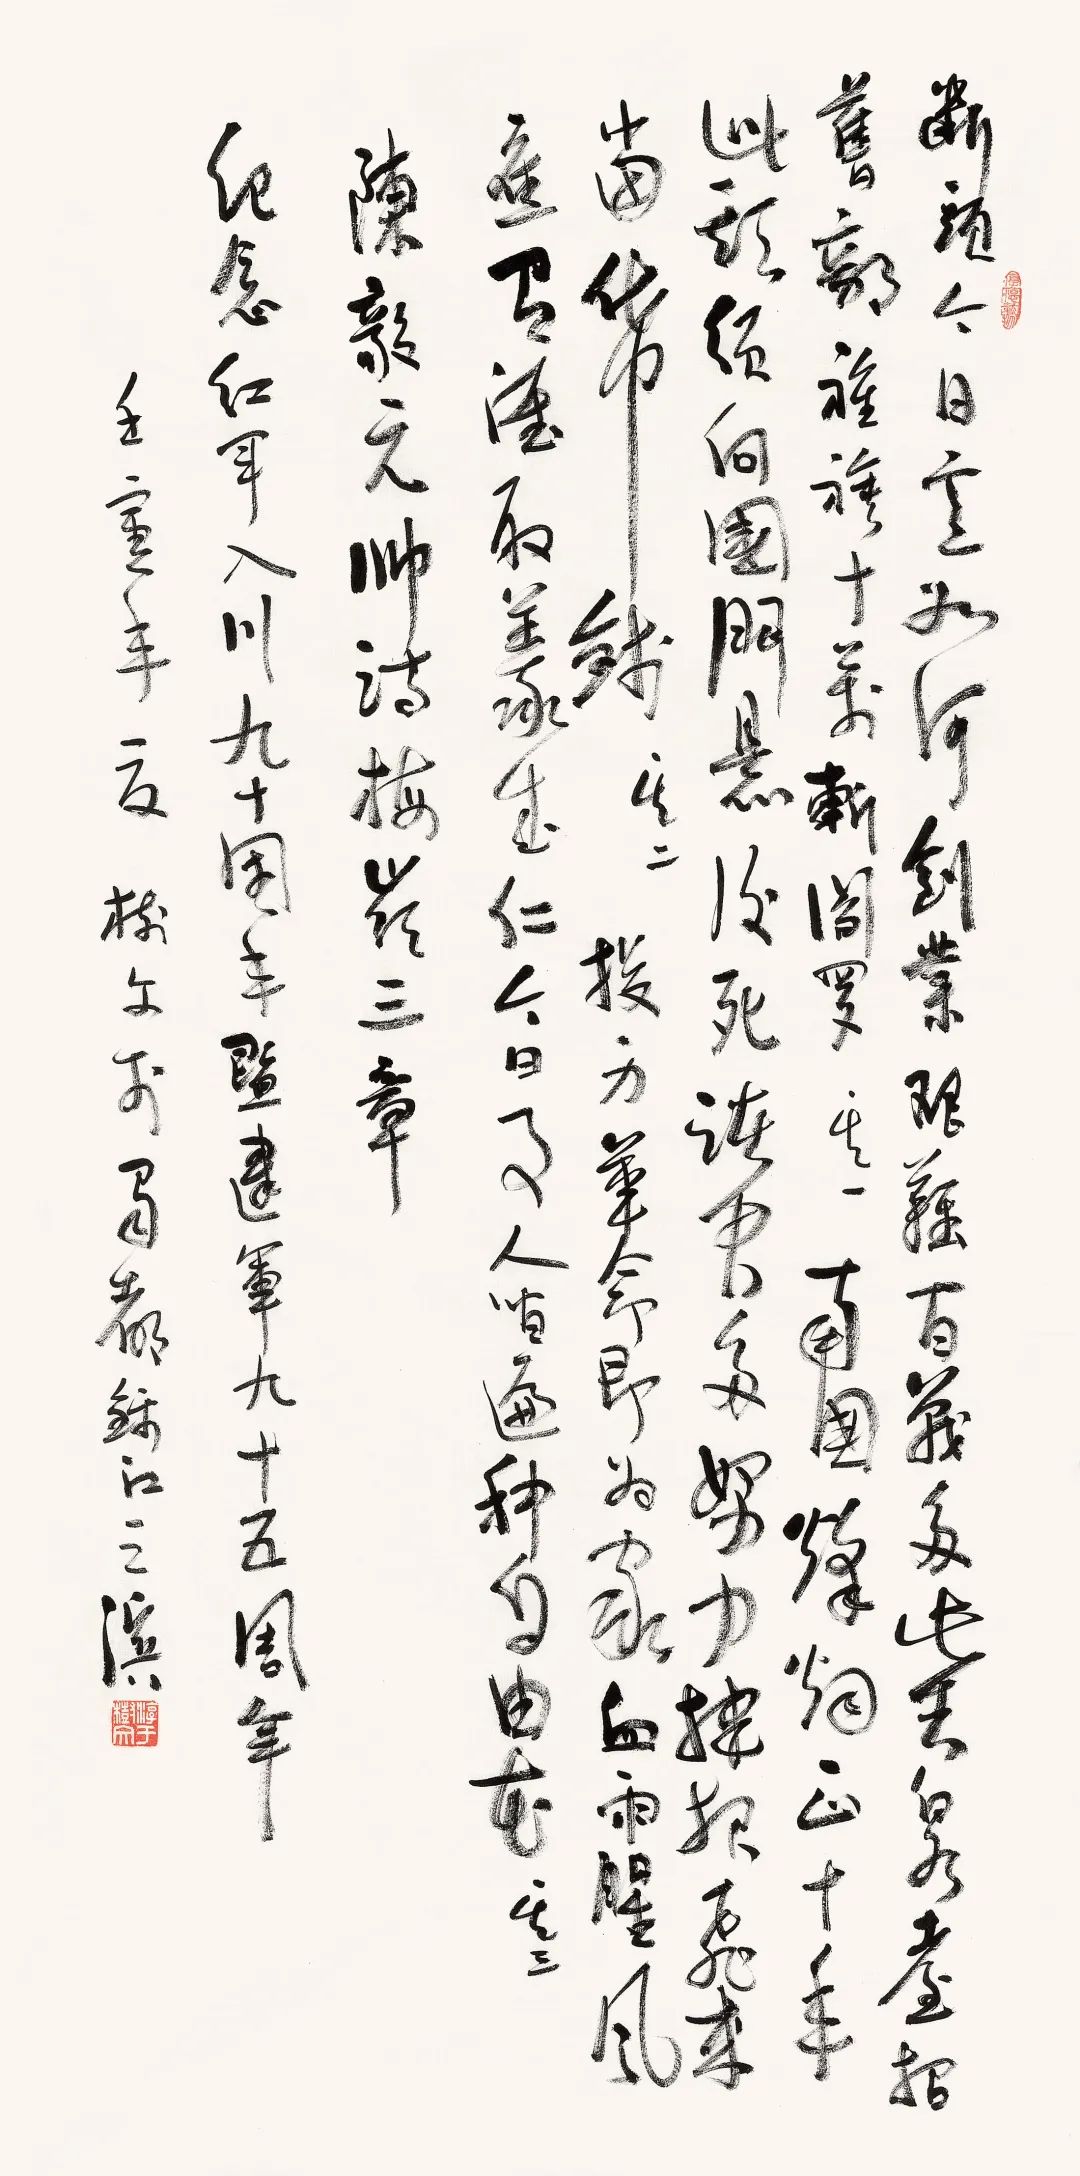 斷頭今日意如何創業艱難百戰多此去泉臺招
舊部旌旗十萬斬閻羅 其一 南國烽烟正十年
此頭須向國門懸後死諸君多努力捷報飛來
當帋錢 其二 投身革命即為家血雨腥風
應有涯取義成仁今日事人間遍種自由花 其三
陳毅元帥詩梅嶺三章
紀念紅軍入川九十周年暨建軍九十五周年
壬寅年夏 樹文於蜀都錦江之濱
淳于樹文